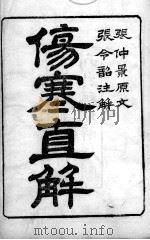 張仲景原文
張令韶注解
傷寒直解
www.mtoou.info/yibook/